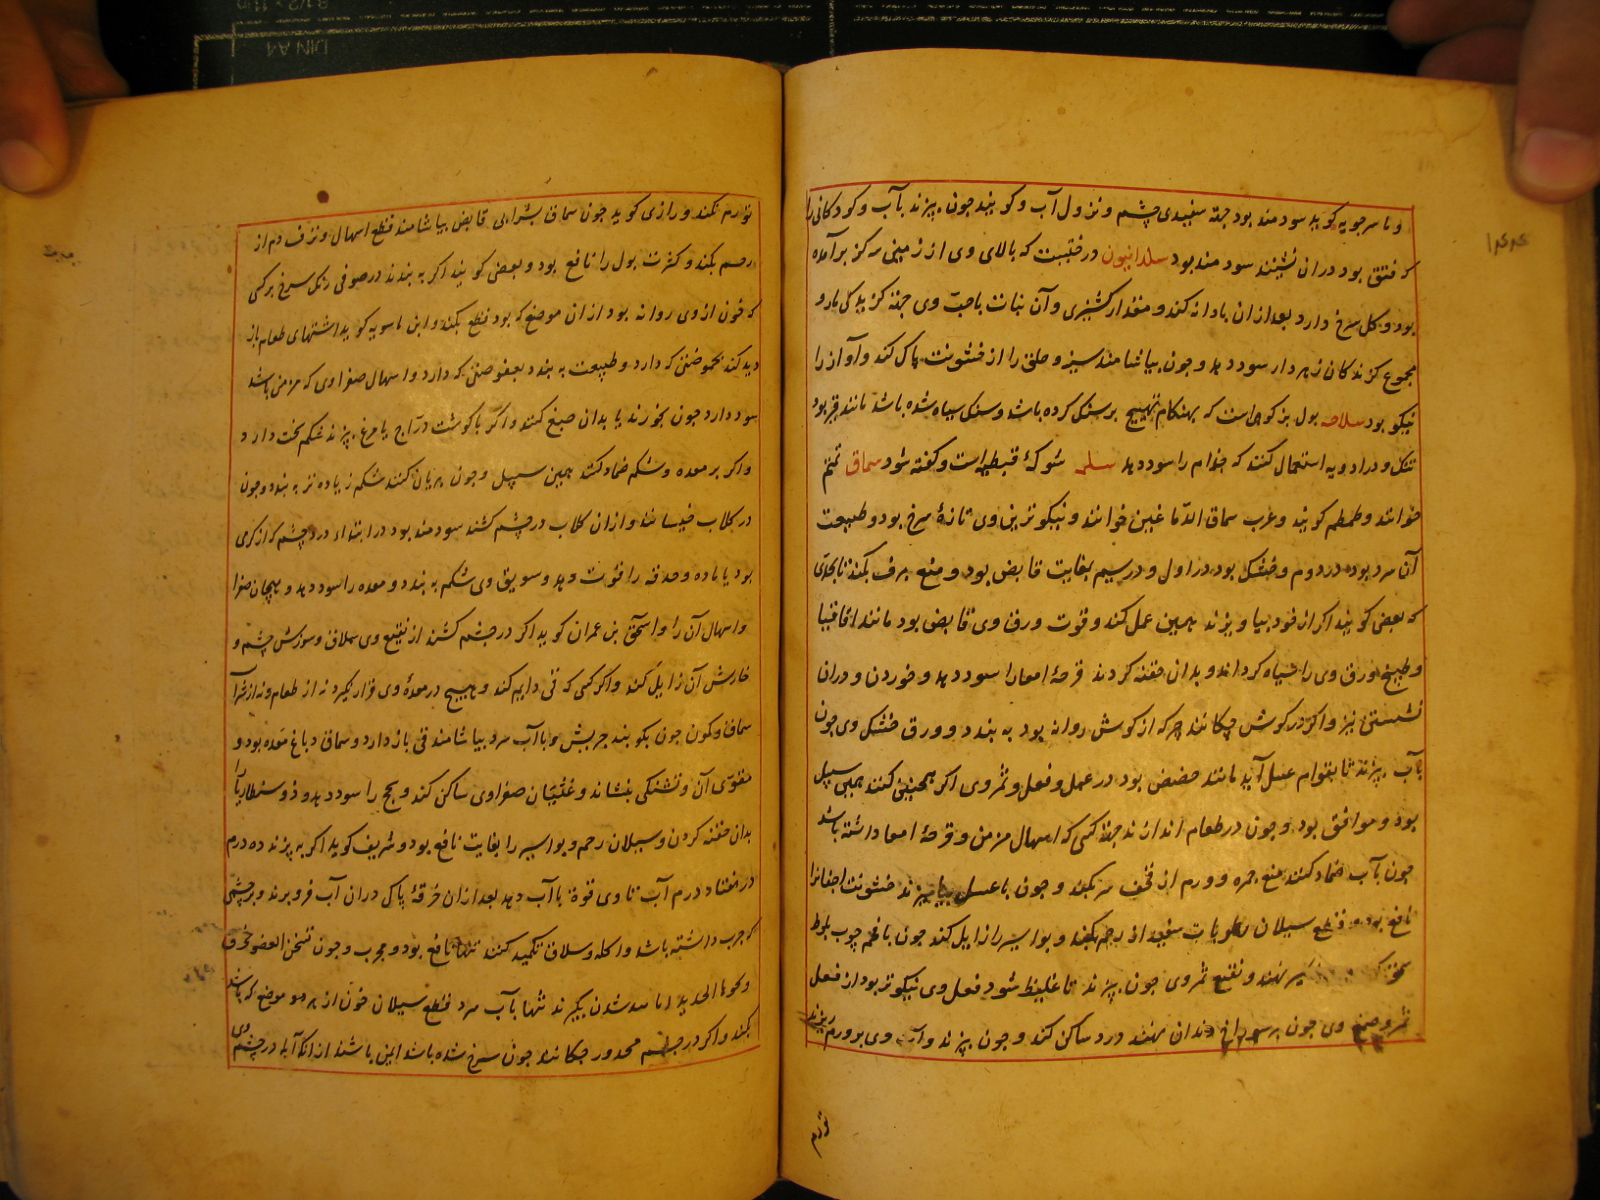 و ماسرجویه کوید سودمند بود جهة سفیدی چشم و نزول آب و کویند چون بپزند بآب و کودکانی را
که فتق بود دران نشینند سودمند بود سلدانیون درختیست که بالای وی از زمین سه کز برآمده
بود و کل سرخ دارد بعد ازان بادانه کند و مقدار کشنیزی و آن نبات باحب وی جهة کزیدکی مار و
مجموع کزندکان زهردار سود دهد و چون بیاشامند سینه و حلق را از خشونت پاک کند و آواز را
نیکو بود سلاحه بول بز کوهی است که بهنکام تهییج بر سنک کرده باشد و سنک سیاه شده باشد مانند قیر بود
تنک و در ادویه استعمال کنند که جذام را سود دهد سلمه شوکهٔ قبطیه است و کفته شود سماق تمتم
خوانند و طمطم کویند و عرب سماق الدباغین خوانند و نیکوترین وی تازهٔ سرخ بود و طبیعت
آن سرد بود در دوم و خشک بود در اول و در سیم بغایت قابض بود و منع نزف بکند تا بحدی
که بعضی کویند اکر از خود بیاویزند همین عمل کند و قوت ورق وی قابض بود مانند اقاقیا
و طبیخ ورق وی را سیاه کرداند و بدان حقنه کردند قرحهٔ امعا را سود دهد و خوردن و دران
نشستن نیز و اکر در کوش چکانند چرکه از کوش روانه بود به بندد و ورق خشک وی چون
بآب بپزند تا بقوام عسل آید مانند حضض بود در عمل و فعل و ثمر وی اکر همچنین کنند همین سبیل
بود و موافق بود و چون در طعام اندازند جهة کسی که اسهال مزمن و قرحهٔ امعا داشته باشد
چون بآب ضماد کنند منع حمره و ورم از قحف سر بکند و چون با عسل بیامیزند خشونت اجفانرا
نافع بود و قطع سیلان رطوبات سفید از رحم بکند و بواسیر را زایل کند چون با فحم چوب بلوط
نهند و نقیع ثمر وی چون بپزند تا غلیظ شود فعل وی نیکوتر بود از فعل
ثمر و صمغ وی چون بر سوراخ دندان نهند درد ساکن کند و چون بپزند و آب وی بر ورم ریزند
تورم
تورم نکند و رازی کوید چون سماق بشرابی قابض بیاشامند قطع اسهال و نزف دم از
رحم بکند و کثرت بول را نافع بود و بعضی کویند اکر به بندند در صوفی رنک سرخ بر کسی
که خون از وی روانه بود از ان موضع که بود قطع بکند و ابن ماسویه کوید اشتهای طعام باز
دید کند بحموضتی که دارد و طبیعت به بندد بعفوصتی که دارد و اسهال صفراوی که مزمن باشد
سود دارد چون بخورند یا بدان صبغ کنند و اکر با کوشت دراج یا مرغ بپزند شکم سخت دارد
و اکر بر معده و شکم ضماد کنند همین سبیل و چون بریان کنند شکم زیاده تر به بندد و چون
در کلاب خیسانند و ازان کلاب در چشم کشند سودمند بود در ابتداء درد چشم که از کرمی
بود یا ماده و حدقه را قوت دهد و سویق وی شکم به بندد و معده را سود دهد و هیجان صفرا
و اسهال آن را و اسحق بن عمران کوید اکر در چشم کشند از نقیع وی سلاق و سوزش چشم و
خارش آن زایل کند و اکر کسی که قی دایم کند و هیچ در معدهٔ وی قرار نکیرد نه از طعام و نه از شراب
سماق و کمون چون بکوبند جریش و باآب سرد بیاشامند قی باز دارد و سماق دباغ معده بود و
مقوی آن و تشنکی بنشاند و غثیان صفراوی ساکن کند و سحج را سود دهد و ذوسنطاریا را
بدان حقنه کردن و سیلان رحم و بواسیر را بغایت نافع بود و شریف کوید اکر به پزند ده درم
در هفتاد درم آب تا وی قوة باآب دهد بعد ازان خرقهٔ پاک دران آب فرو برند و بر چشمی
که جرب داشته باشد و اکله و سلاق تکمید کنند تنها نافع بود و مجرب و چون تسخن العضو بخرق
و نحوها الحدید اما سد شدن بکیرند تنها بآب سرد قطع سیلان خون از هر دو موضع که باشد
بکند و اکر در چشم مجدور چکانند چون سرخ شده باشد ایمن باشند از انک آبله در چشم وی